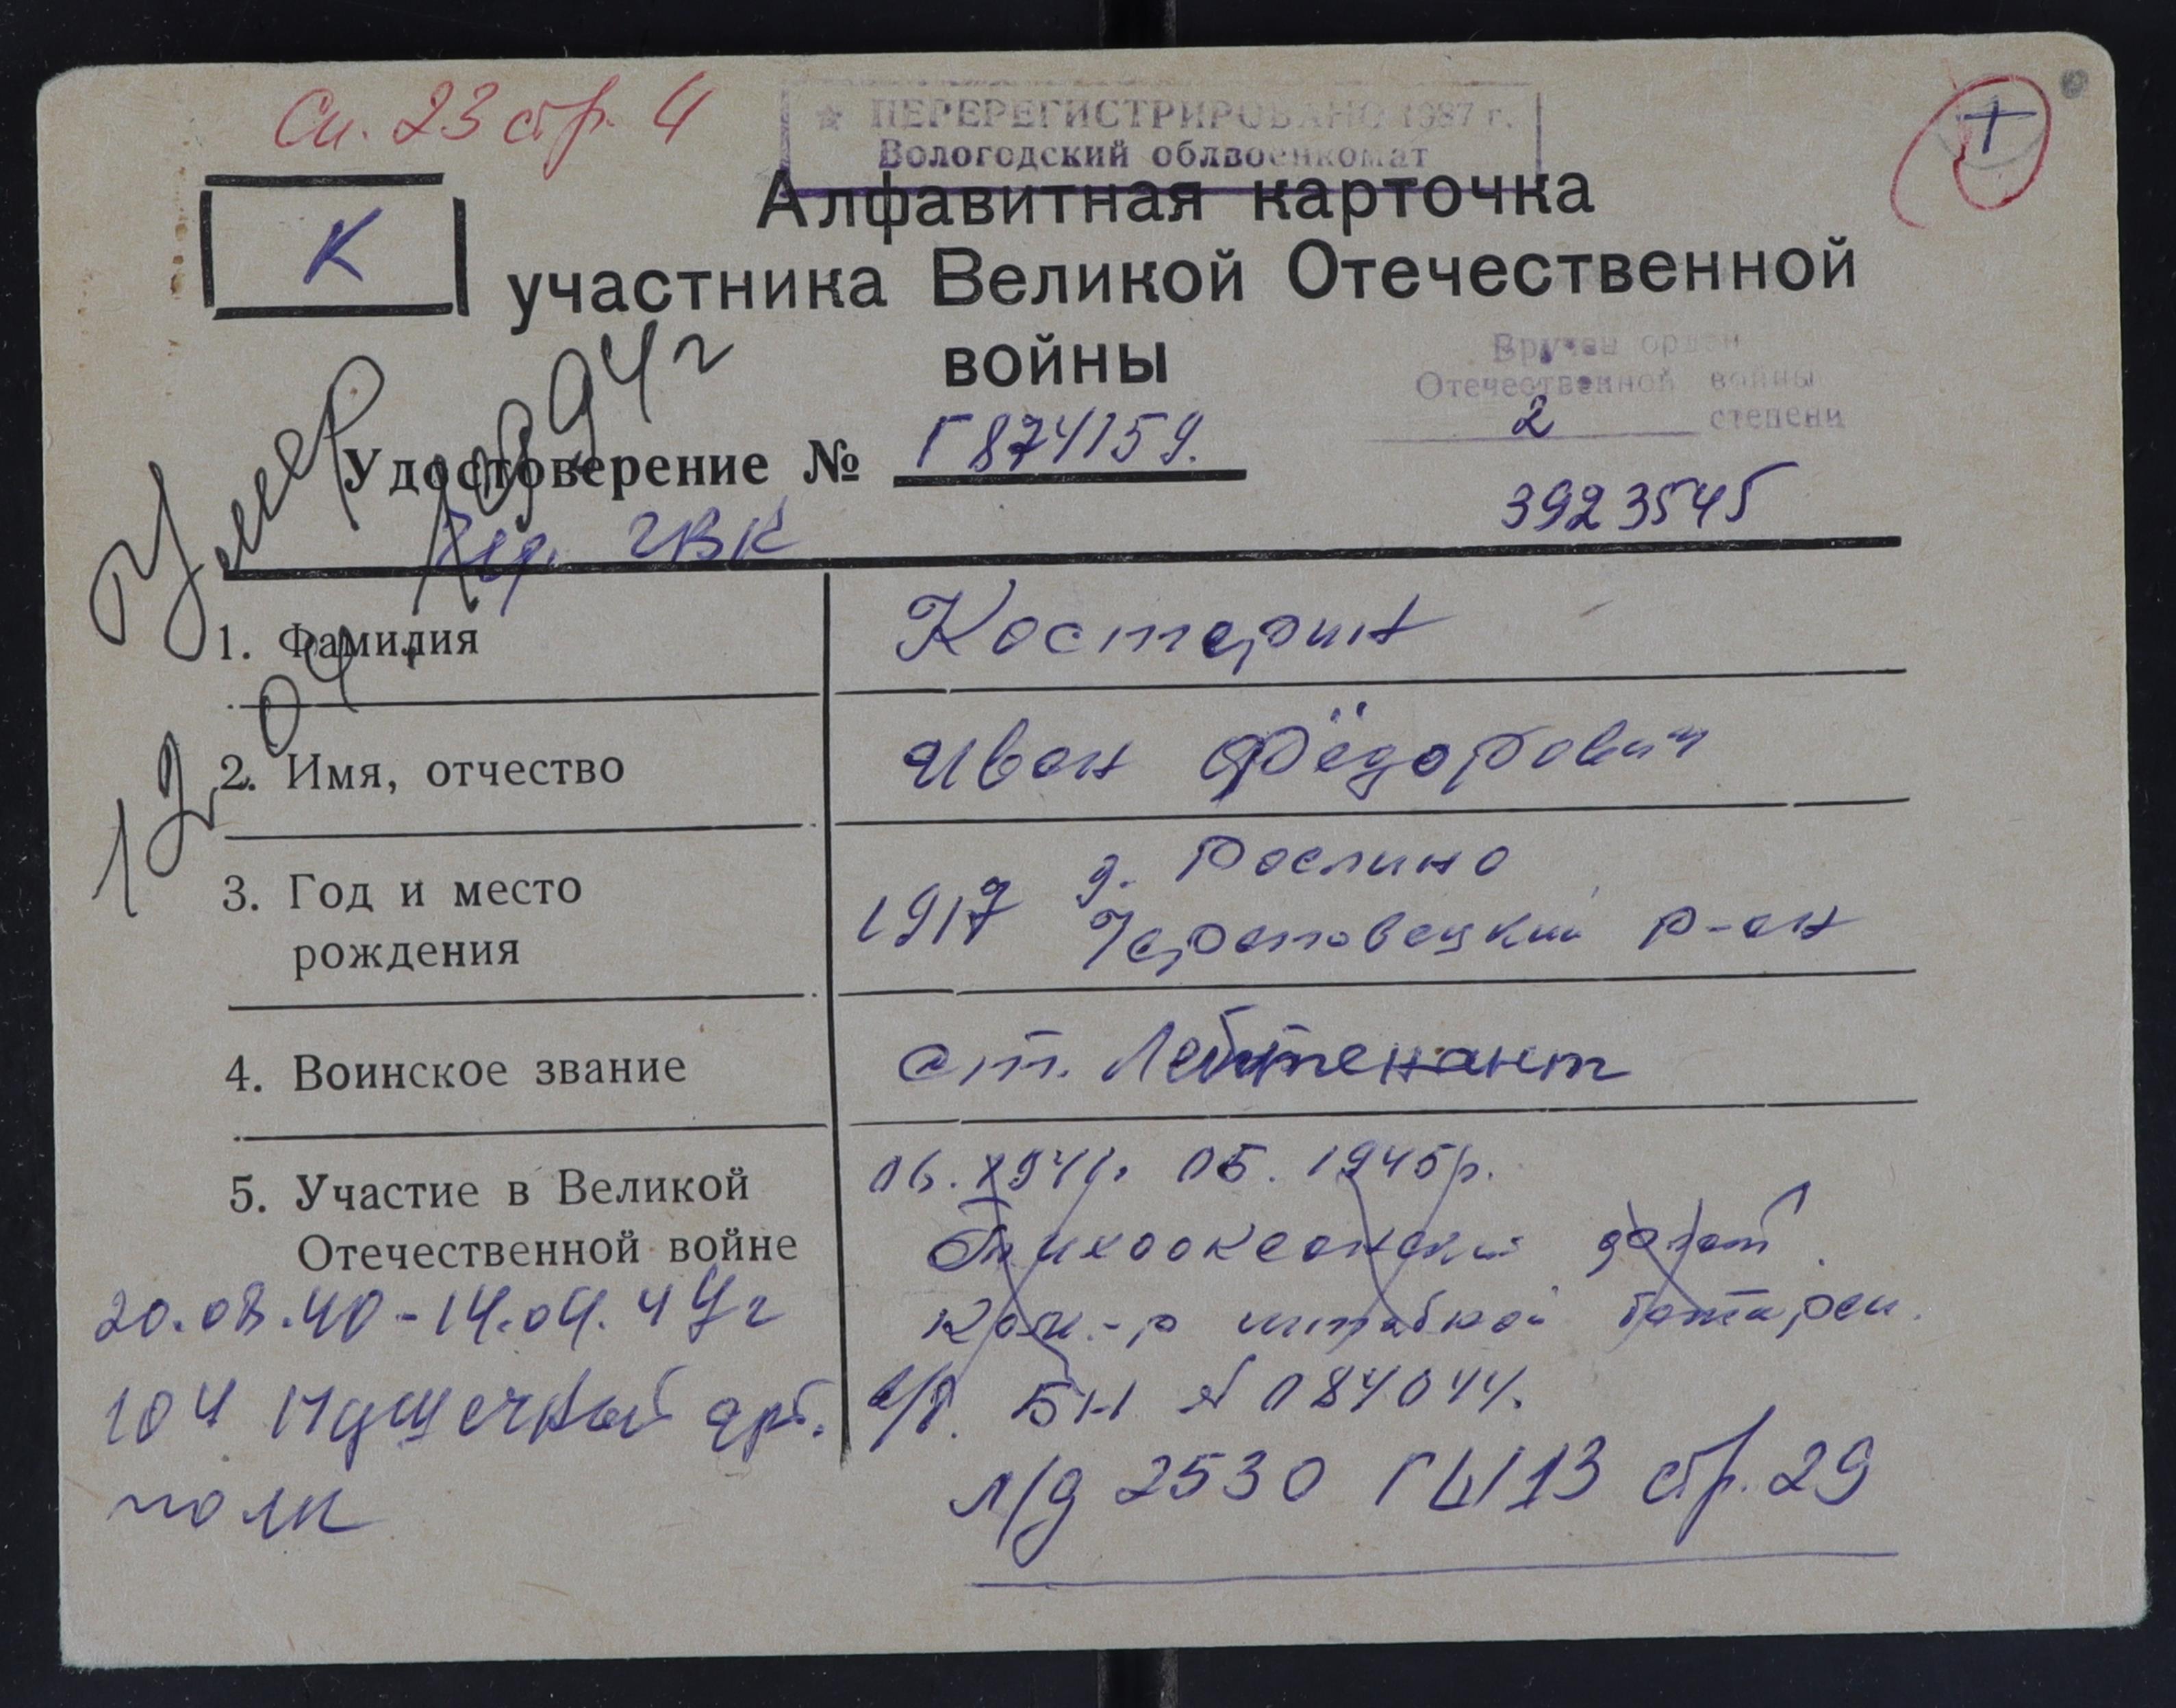 Сп. 23 стр. 4
★ ПЕРЕРЕГИСТРИРОВАНО 1987 г.
Вологодский облвоенкомат
+
К
Алфавитная карточка
участника Великой Отечественной
войны
Вручен орден
Отечественной войны
2 степени
3923545
Удостоверение № Г 874159.
ГВК
Умер
12.04.1994г
1. Фамилия Костерин
2. Имя, отчество Иван Фёдорович
3. Год и место
рождения
1917 д. Рослино
Череповецкий р-он
4. Воинское звание ст. Лейтенант
5. Участие в Великой
Отечественной войне
06.1941г. 05.1945г.
Тихоокеанский флот.
Ком-р штабной батареи.
20.08.40-14.04.47г
104 Пушечный арт.
полк
в/б. БН № 084044.
л/д 2530 ГЫ13 стр. 29